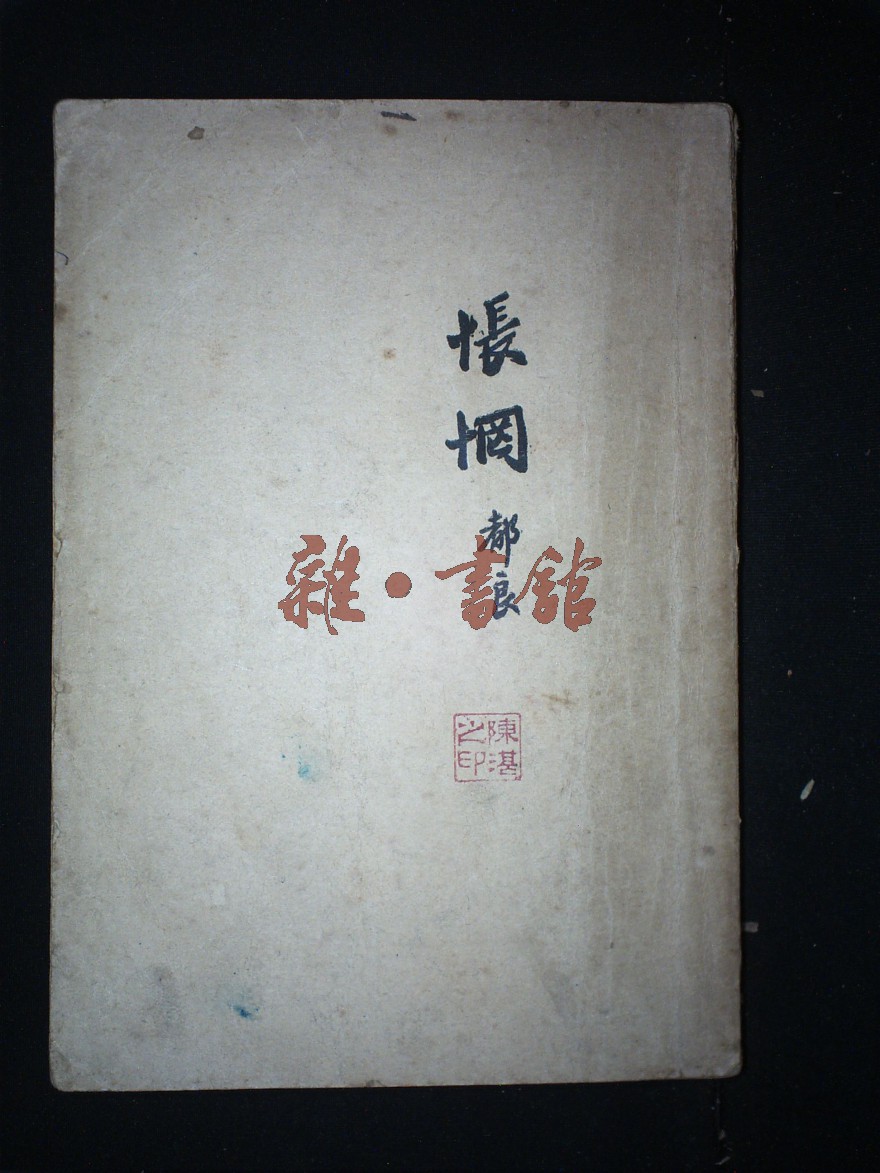 悵惘
都良
雜·書館
陳湛之印